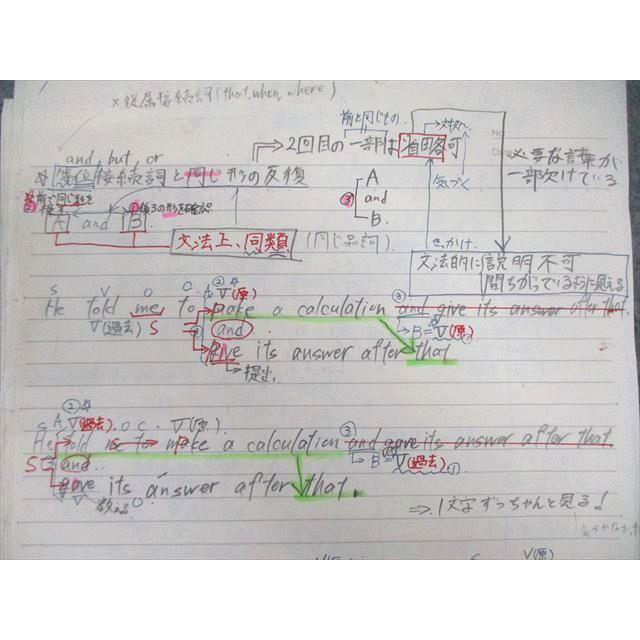 ×従属接続詞(that, when, where)
前と同じもの
and, but, or
2回目の一部は省略可
必要な言葉が
一部欠けている
等位接続詞と同じ形の反復
気づく
A
③ and
B
②前で同じ形を
①後ろの形を確認
A and B
文法上、同類 (同じ品詞)
きっかけ
文法的に説明不可
間ちがっているように見える
S V O C ② V(原) ③
He told me to make a calculation and give its answer after that.
V(過去) S and B=V(原)①
give its answer after that
提出
② ③
S A V(過去) O C V(原)
He told me to make a calculation and gave its answer after that
S and B=V(過去)①
gave its answer after that.
V 教える O
⇒1文字ずつちゃんと見る!
V(原)